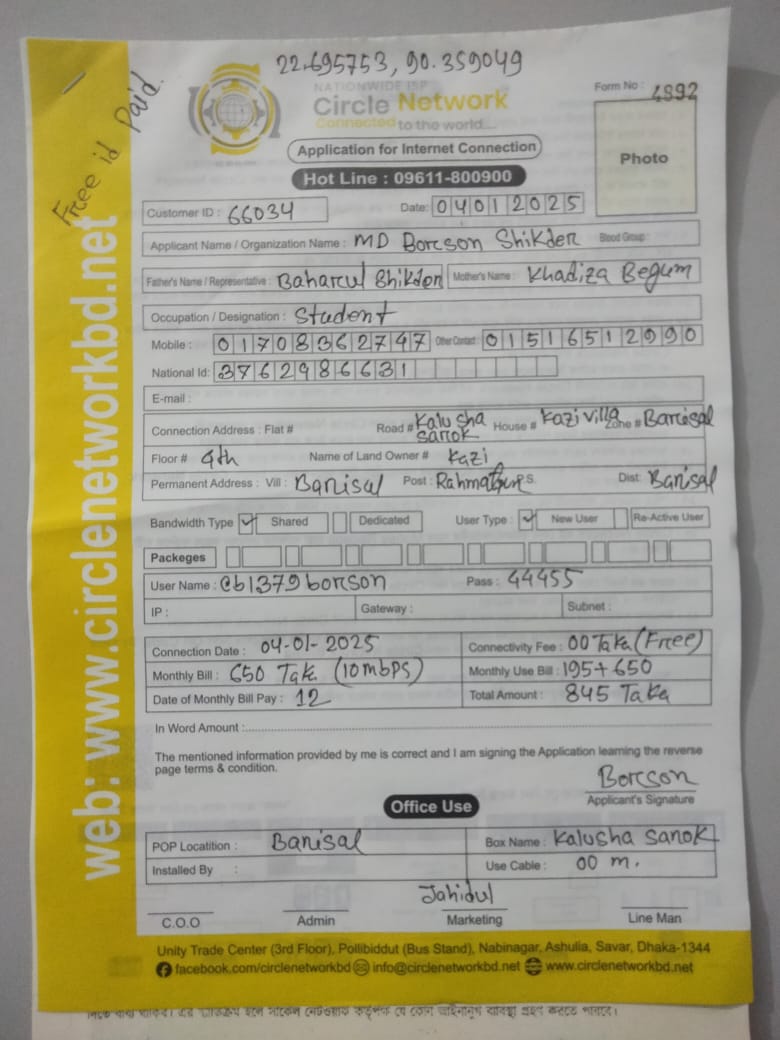 22.695753, 90.359049
Free id Paid
NATIONWIDE ISP
Circle Network
Connected to the world....
Form No : 4892
Photo
Application for Internet Connection
Hot Line : 09611-800900
Customer ID : 66034
Date: 04012025
Applicant Name / Organization Name : MD Borcson Shikder Blood Group:
Father's Name / Representative : Baharul Shikder Mother's Name : Khadiza Begum
Occupation / Designation : Student
Mobile : 01708362747 Other Contact : 01516512990
National Id: 3762986631
E-mail :
Connection Address : Flat # Road # Kalusha sarrok House # Kazi villa Zone # Barisal
Floor # 9th Name of Land Owner # Kazi
Permanent Address : Vill : Barisal Post : Rahmatpur P.S. Dist: Barisal
Bandwidth Type ✓ Shared Dedicated User Type : ✓ New User Re-Active User
Packeges
User Name : @b1379borcson Pass : 44455
IP : Gateway : Subnet :
Connection Date : 04-01-2025 Connectivity Fee : 00 Taka (Free)
Monthly Bill : 650 Tak. (10mbps) Monthly Use Bill : 195+650
Date of Monthly Bill Pay : 12 Total Amount : 845 Taka
In Word Amount :
The mentioned information provided by me is correct and I am signing the Application learning the reverse
page terms & condition.
Borcson
Applicant's Signature
Office Use
POP Locatition : Barisal Box Name : Kalusha sarrok
Installed By : Use Cable : 00 m.
Jahidul
C.O.O Admin Marketing Line Man
Unity Trade Center (3rd Floor), Pollibiddut (Bus Stand), Nabinagar, Ashulia, Savar, Dhaka-1344
facebook.com/circlenetworkbd info@circlenetworkbd.net www.circlenetworkbd.net
web: www.circlenetworkbd.net